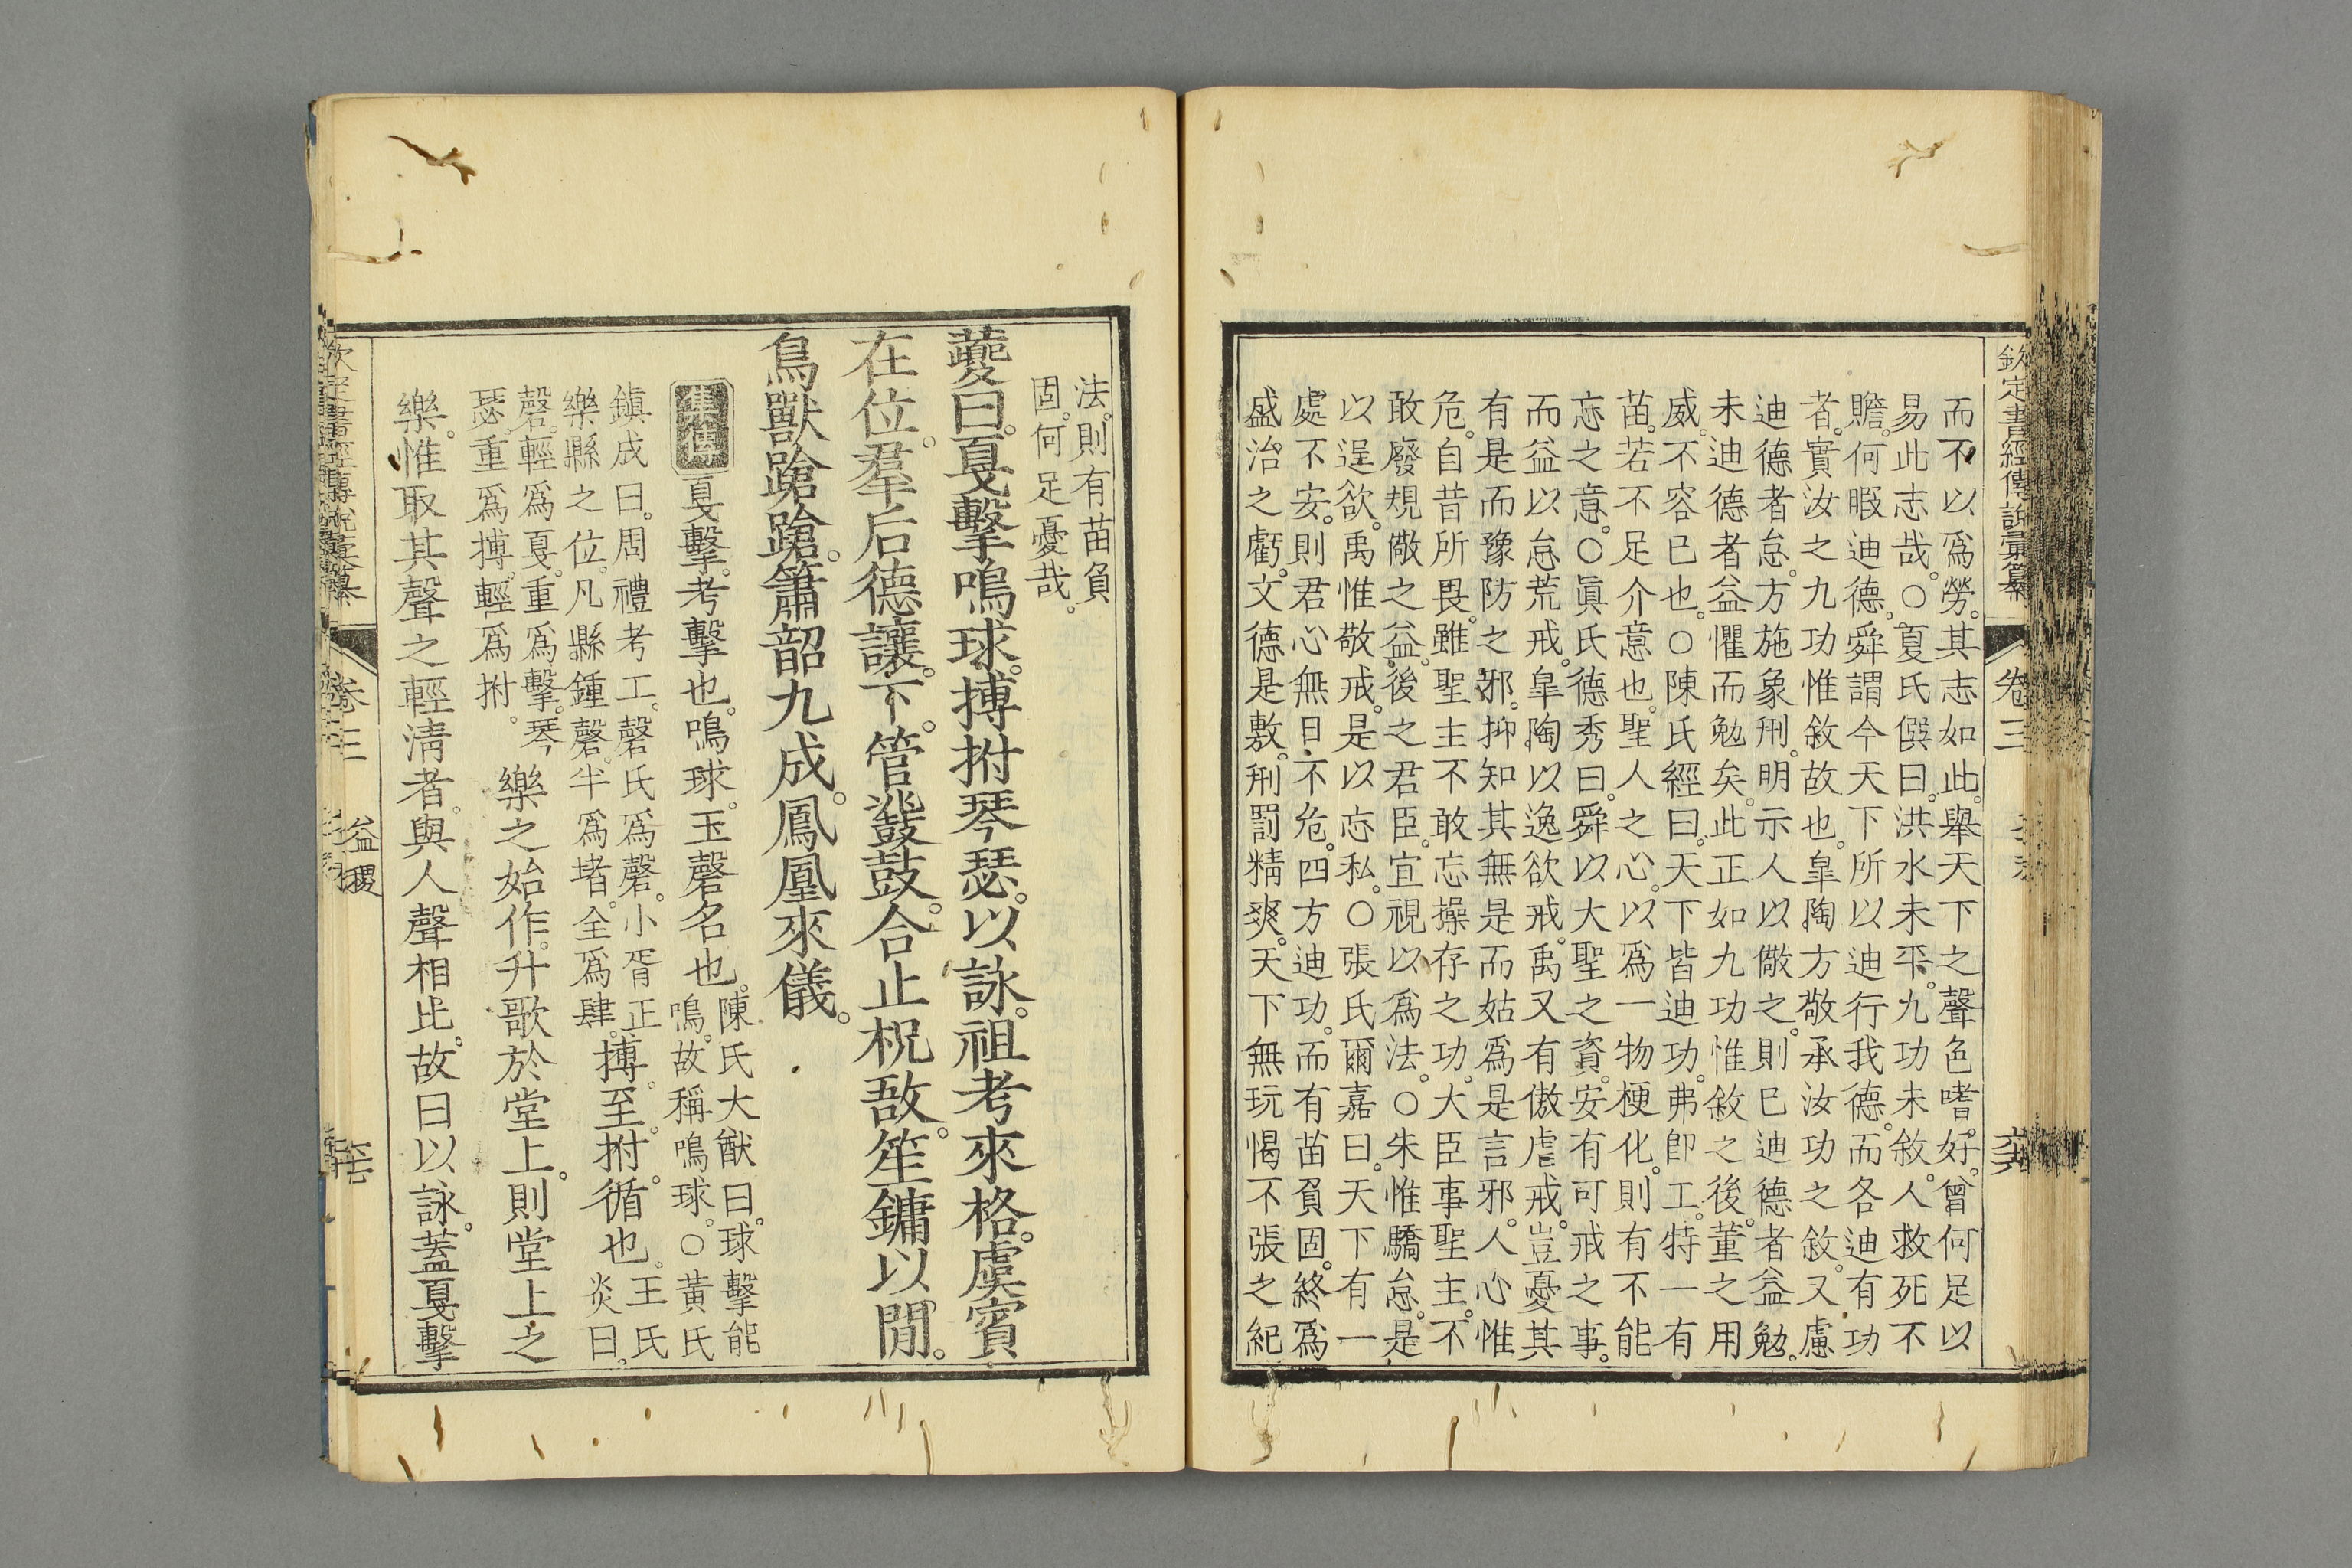 欽定書經傳說彙纂 卷三
而不以爲勞。其志如此。舉天下之聲色嗜好。曾何足以
易此志哉。○夏氏僎曰。洪水未平。九功未敘。人救死不
贍。何暇迪德。舜謂今天下所以迪行我德。而各迪有功
者。實汝之九功惟敘故也。皐陶方敬承汝功之敘。又慮
迪德者怠。方施象刑。明示人以儆之。則已迪德者益勉。
未迪德者益懼而勉矣。此正如九功惟敘之後。董之用
威。不容已也。○陳氏經曰。天下皆迪功。弗卽工。特一有
苗。若不足介意也。聖人之心。以爲一物梗化。則有不能
忘之意。○眞氏德秀曰。舜以大聖之資。安有可戒之事。
而益以怠荒戒。皐陶以逸欲戒。禹又有傲虐戒。豈憂其
有是而豫防之邪。抑知其無是而姑爲是言邪。人心惟
危。自昔所畏。雖聖主不敢忘操存之功。大臣事聖主。不
敢廢規儆之益。後之君臣。宜視以爲法。○朱惟驕怠。是
以逞欲。禹惟敬戒。是以忘私。○張氏爾嘉曰。天下有一
處不安。則君心無日不危。四方迪功。而有苗負固。終爲
盛治之虧。文德是敷。刑罰精爽。天下無玩愒不張之紀
法。則有苗負
固。何足憂哉。
夔曰。戛擊鳴球。搏拊琴瑟。以詠。祖考來格。虞賓
在位。羣后德讓。下。管鼗鼓。合止柷敔。笙鏞以閒。
鳥獸蹌蹌。簫韶九成。鳳凰來儀。
集傳 戛擊。考擊也。鳴球。玉磬名也。
陳氏大猷曰。球擊能
鳴。故稱鳴球。○黃氏
鎭成曰。周禮考工。磬氏爲磬。小胥正
樂縣之位。凡縣鍾磬。半爲堵。全爲肆。
搏。至。拊。循也。
王氏
炎曰。
磬。輕爲戛。重爲擊。琴
瑟。重爲搏。輕爲拊。
樂之始作。升歌於堂上。則堂上之
樂。惟取其聲之輕淸者。與人聲相比。故曰以詠。蓋戛擊
欽定書經傳說彙纂 卷三 益稷